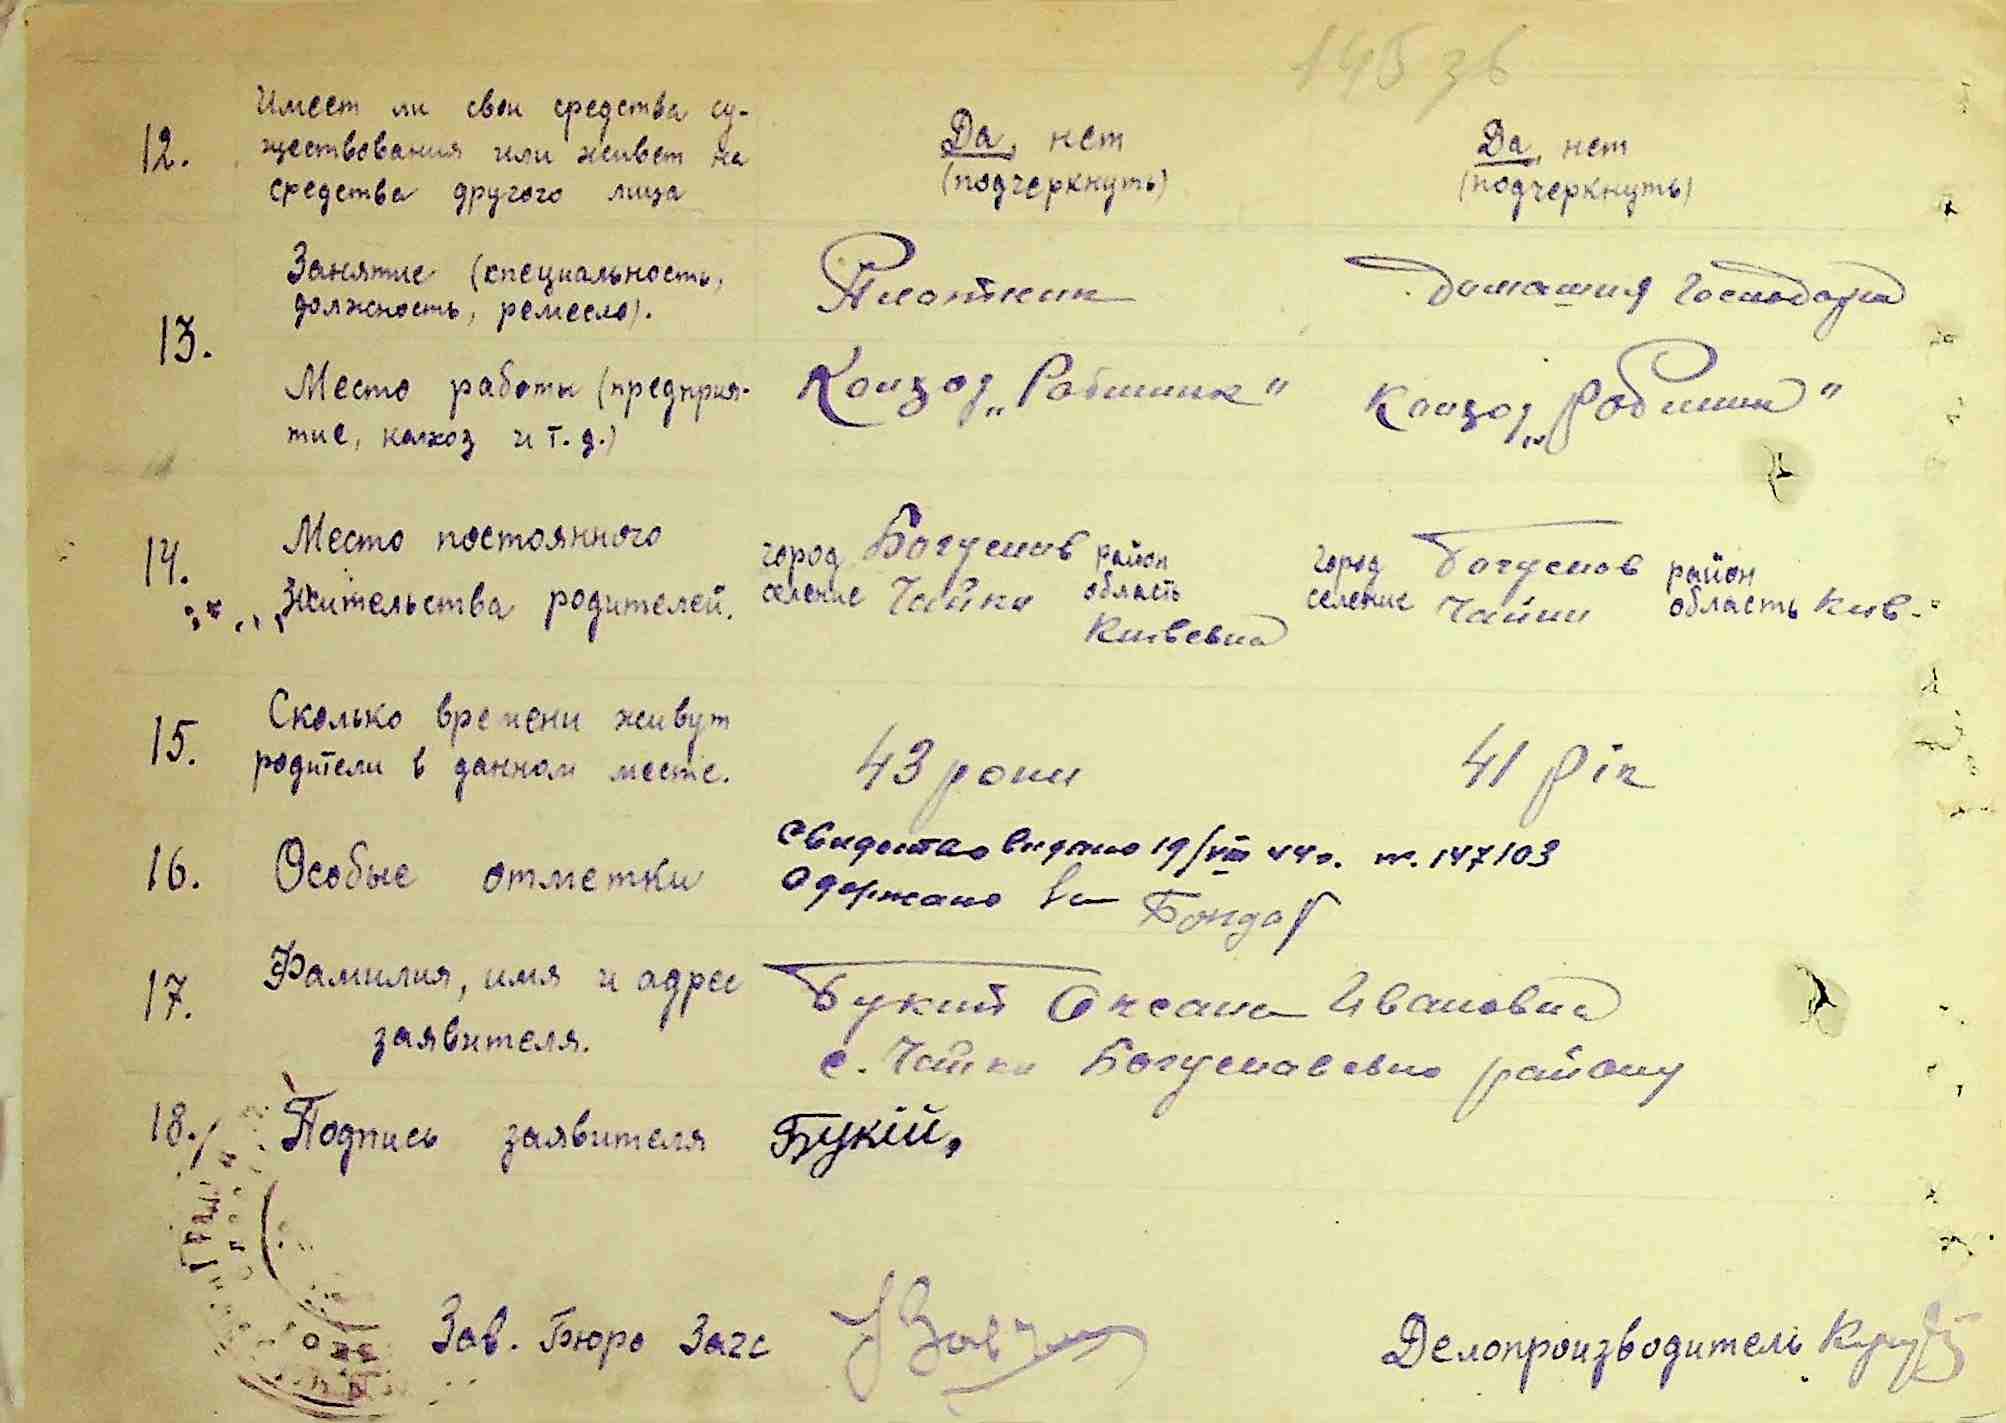 145 зв
12. Имеет ли свои средства су-
ществования или живет на
средства другого лица
Да, нет
(подчеркнуть)
Да, нет
(подчеркнуть)
13. Занятие (специальность,
должность, ремесло).
Плотник
Домашня Господарка
Место работы (предприя-
тие, колхоз и т.д.)
Колгоз „Робітник"
Колгоз „Робітник"
14. Место постоянного
жительства родителей.
город Богуслав район
селение Чайки область
Киевська
город Богуслав район
селение Чайки область Київ.
15. Сколько времени живут
родители в данном месте.
43 роки
41 рік
16. Особые отметки
Свидоцтво видано 19/VIII 44 р. №. 147103
Одержано
Бондар
17. Фамилия, имя и адрес
заявителя.
Букій Оксана Ивановна
с. Чайки Богуславсько району
18. Подпись заявителя
Букій.
Зав. Бюро Загс
Делопроизводитель